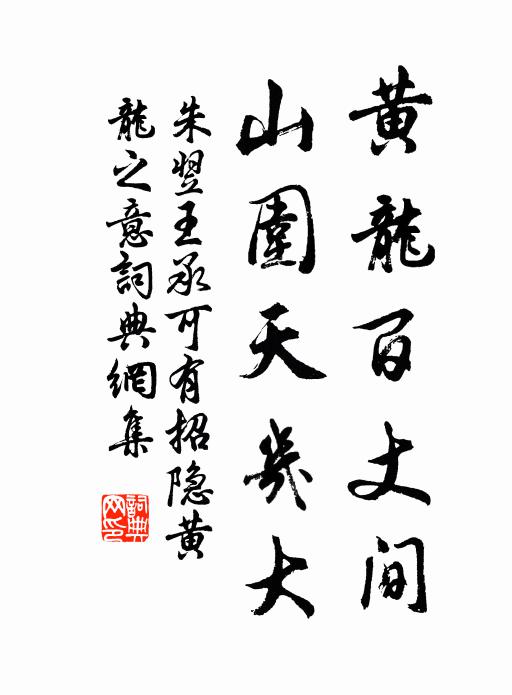 黄龍百丈间
山圍天幾大
朱翌王承可有招隐黄
龍之意詞典網集
詞典網印